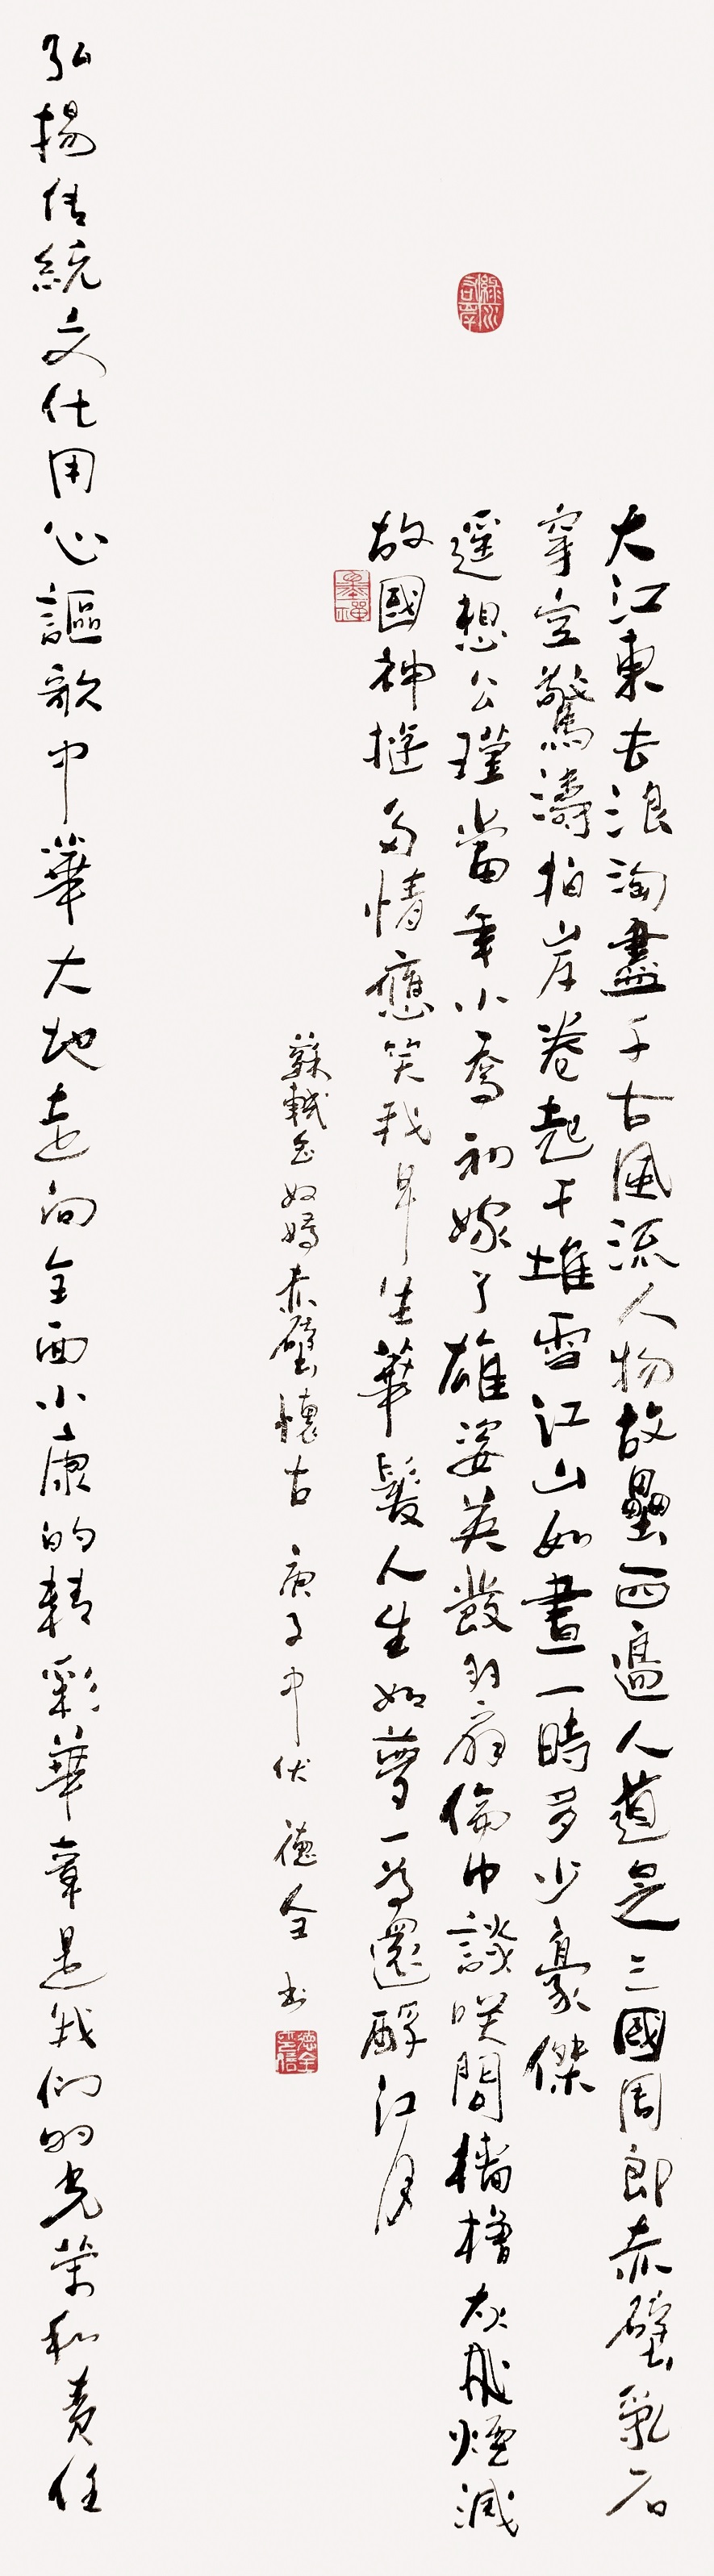 大江東去浪淘盡千古風流人物故壘西邊人道是三國周郎赤壁亂石
穿空驚濤拍岸卷起千堆雪江山如畫一時多少豪傑
遥想公瑾當年小喬初嫁了雄姿英發羽扇倫巾談笑間檣櫓灰飛煙滅
故國神遊多情應笑我早生華髮人生如夢一尊還酹江月
蘇軾念奴嬌赤壁懷古 庚子中伏 德全書
德全
弘揚傳統文化用心謳歌中華大地走向全面小康的精彩華章是我們的光榮和責任